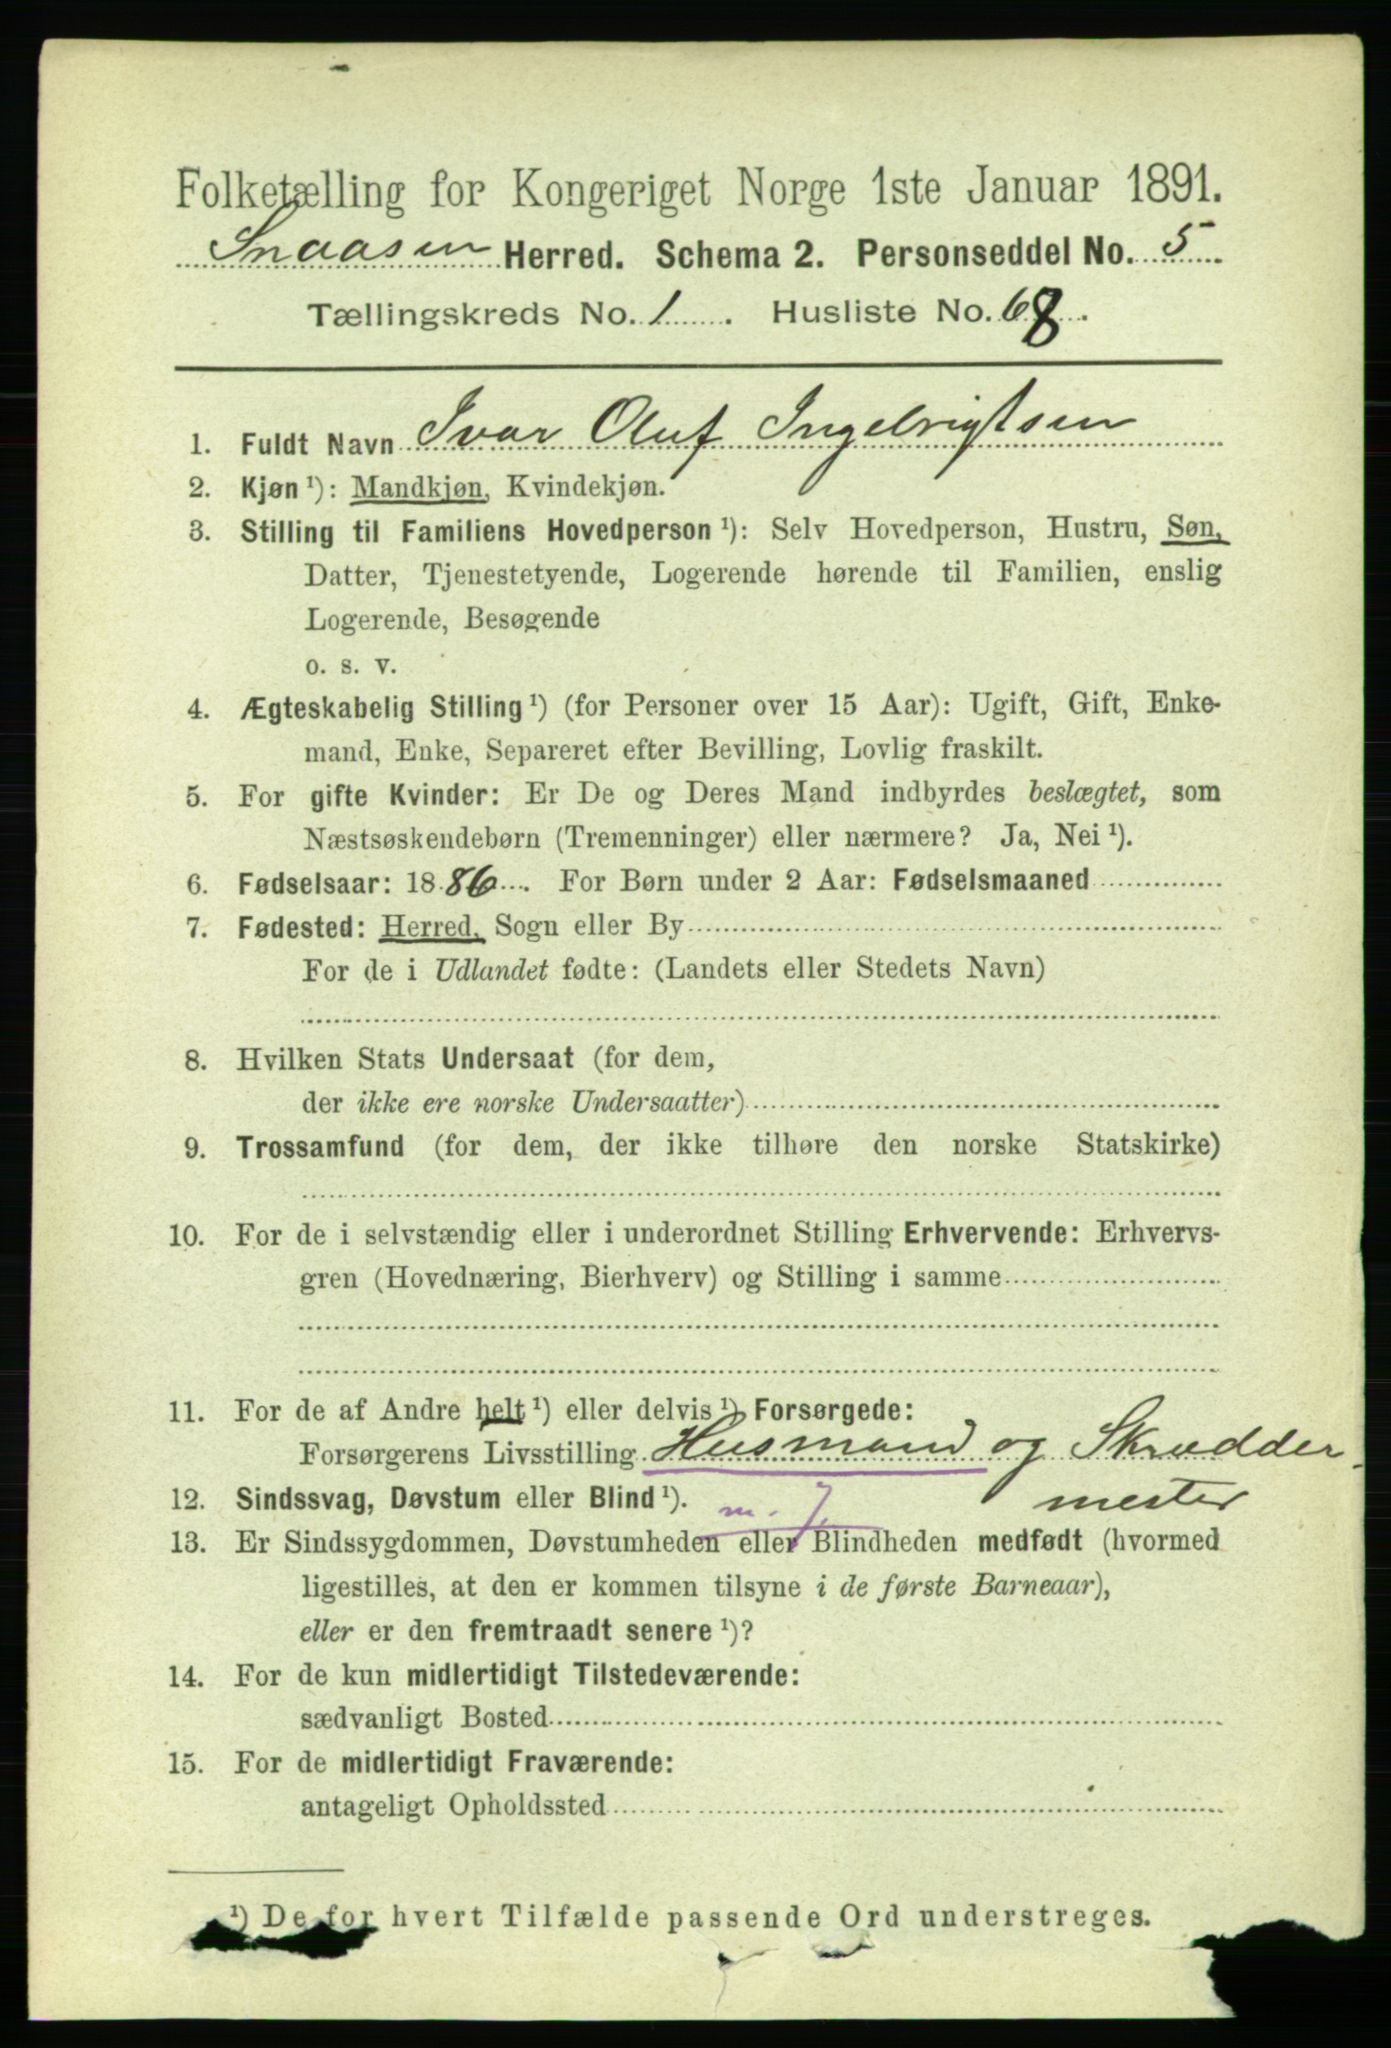 Folketælling for Kongeriget Norge 1ste Januar 1891.
Snaasen Herred. Schema 2. Personseddel No. 5
Tællingskreds No. 1. Husliste No. 68.
1. Fuldt Navn Ivar Oluf Ingebrigtsen
2. Kjøn ¹): Mandkjøn, Kvindekjøn.
3. Stilling til Familiens Hovedperson ¹): Selv Hovedperson, Hustru, Søn,
Datter, Tjenestetyende, Logerende hørende til Familien, enslig
Logerende, Besøgende
o. s. v.
4. Ægteskabelig Stilling ¹) (for Personer over 15 Aar): Ugift, Gift, Enke-
mand, Enke, Separeret efter Bevilling, Lovlig fraskilt.
5. For gifte Kvinder: Er De og Deres Mand indbyrdes beslægtet, som
Næstsøskendebørn (Tremenninger) eller nærmere? Ja, Nei ¹).
6. Fødselsaar: 1886. For Børn under 2 Aar: Fødselsmaaned
7. Fødested: Herred, Sogn eller By
For de i Udlandet fødte: (Landets eller Stedets Navn)
8. Hvilken Stats Undersaat (for dem,
der ikke ere norske Undersaatter)
9. Trossamfund (for dem, der ikke tilhøre den norske Statskirke)
10. For de i selvstændig eller i underordnet Stilling Erhvervende: Erhvervs-
gren (Hovednæring, Bierhverv) og Stilling i samme
11. For de af Andre helt ¹) eller delvis ¹) Forsørgede:
Forsørgerens Livsstilling Husmand og Skrædder
12. Sindssvag, Døvstum eller Blind ¹). m. J. mester
13. Er Sindssygdommen, Døvstumheden eller Blindheden medfødt (hvormed
ligestilles, at den er kommen tilsyne i de første Barneaar),
eller er den fremtraadt senere ¹)?
14. For de kun midlertidigt Tilstedeværende:
sædvanligt Bosted
15. For de midlertidigt Fraværende:
antageligt Opholdssted
¹) De for hvert Tilfælde passende Ord understreges.